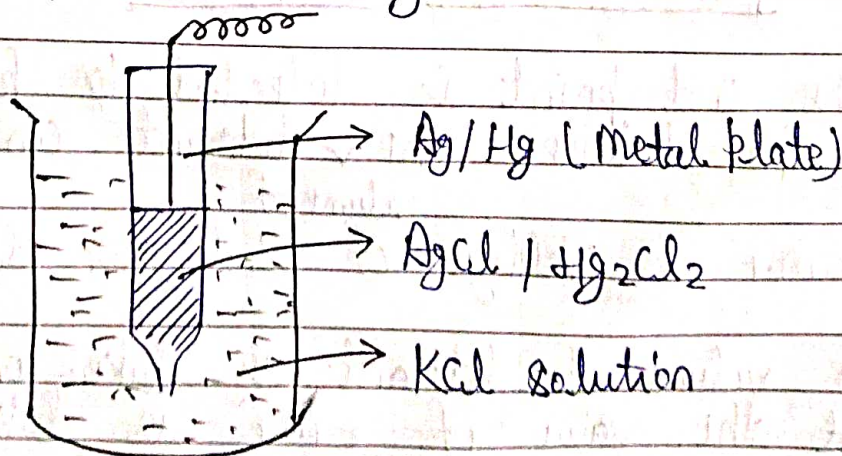 Ag/Hg (Metal plate)
AgCl / Hg₂Cl₂
KCl solution